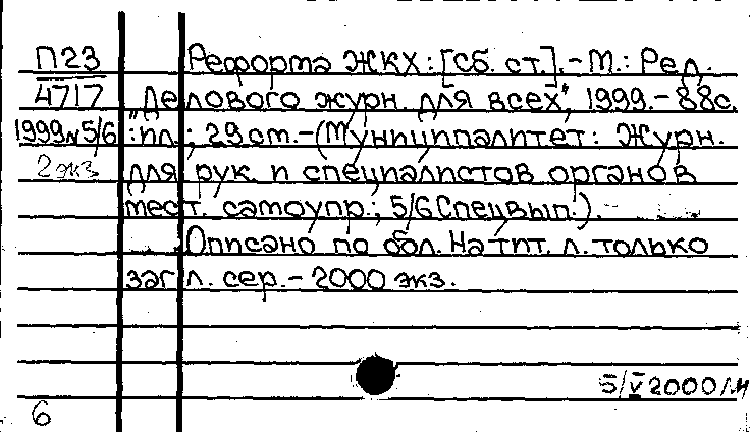 П23 Реформа ЖКХ: [Сб. ст.]. - М.: Ред.
4717 „Делового журн. для всех", 1999. - 88с.
1999 N 5/6 : ил.; 29 см. - (Муниципалитет: Журн.
2 экз для рук. и специалистов органов
мест. самоупр.; 5/6 Спецвып.).
Описано по обл. На тит. л. только
загл. сер. - 2000 экз.
5/V 2000
6